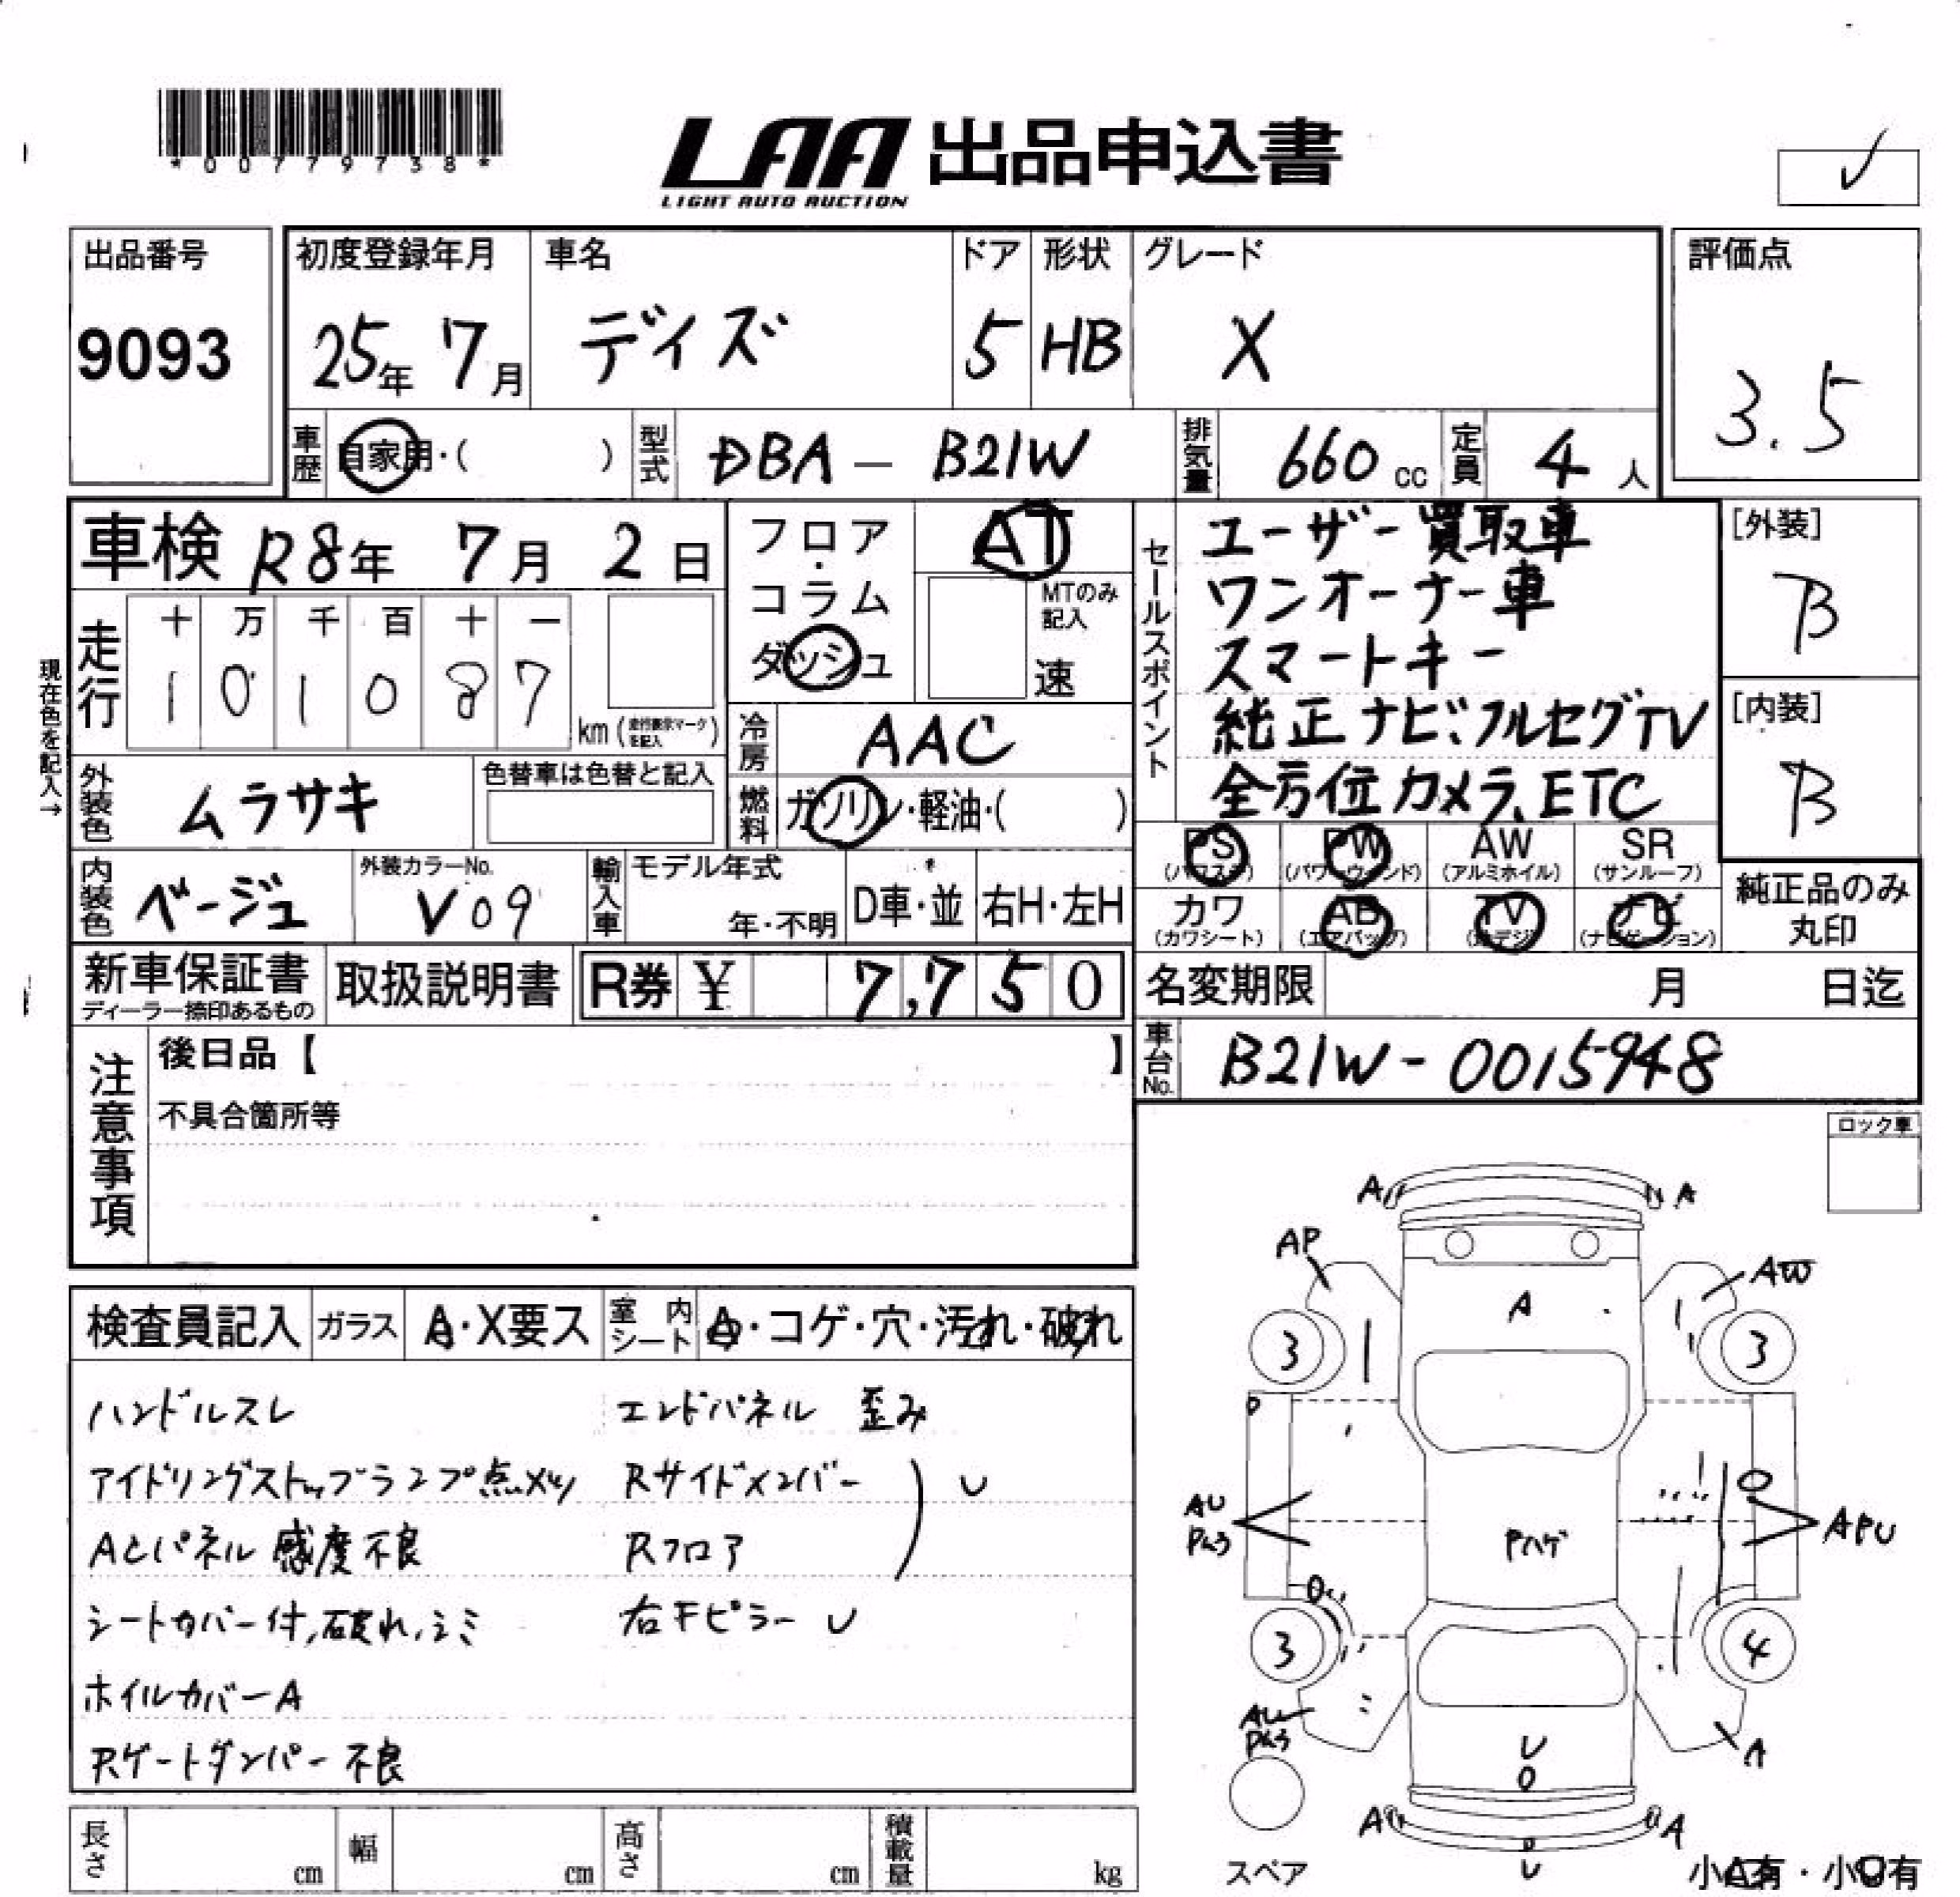 *00779738*
LAA 出品申込書
LIGHT AUTO AUCTION
出品番号
9093
初度登録年月
25年 7月
車名
デイズ
ドア
5
形状
HB
グレード
X
評価点
3.5
車歴
自家用・( )
型式
DBA - B21W
排気量
660 cc
定員
4 人
車検 R8年 7月 2日
フロア・コラム
ダッシュ
AT
MTのみ記入
速
現在色を記入→
走行
十 万 千 百 十 一
1 0 1 0 8 7
km (走行表示マークを記入)
冷房
AAC
燃料
ガソリン・軽油・( )
外装色
ムラサキ
色替車は色替と記入
内装色
ベージュ
外装カラーNo.
V09
輸入車
モデル年式
年・不明
D車・並
右H・左H
セールスポイント
ユーザー買取車
ワンオーナー車
スマートキー
純正ナビ、フルセグTV
全方位カメラ、ETC
[外装]
B
[内装]
B
PS (パワステ)
PW (パワーウィンド)
AW (アルミホイル)
SR (サンルーフ)
カワ (カワシート)
AB (エアバッグ)
TV (地デジ)
ナビ (ナビゲーション)
純正品のみ
丸印
新車保証書
ディーラー捺印あるもの
取扱説明書
R券 ¥ 7,750
名変期限 月 日迄
車台No.
B21W-0015948
注意事項
後日品【 】
不具合箇所等
ロック車
検査員記入
ガラス
A・X要ス
室内シート
A・コゲ・穴・汚れ・破れ
ハンドルスレ
アイドリングストップランプ点メツ
ACパネル 感度不良
シートカバー付,破れ,シミ
ホイルカバーA
Rゲートダンパー不良
エンドパネル 歪み
Rサイドメンバー
Rフロア
U
右Fピラー U
A A
AP AW
A
3 3
AU
APU
Pハゲ
3 4
A
U
A A
U
スペア
小A有・小U有
長さ cm
幅 cm
高さ cm
積載量 kg